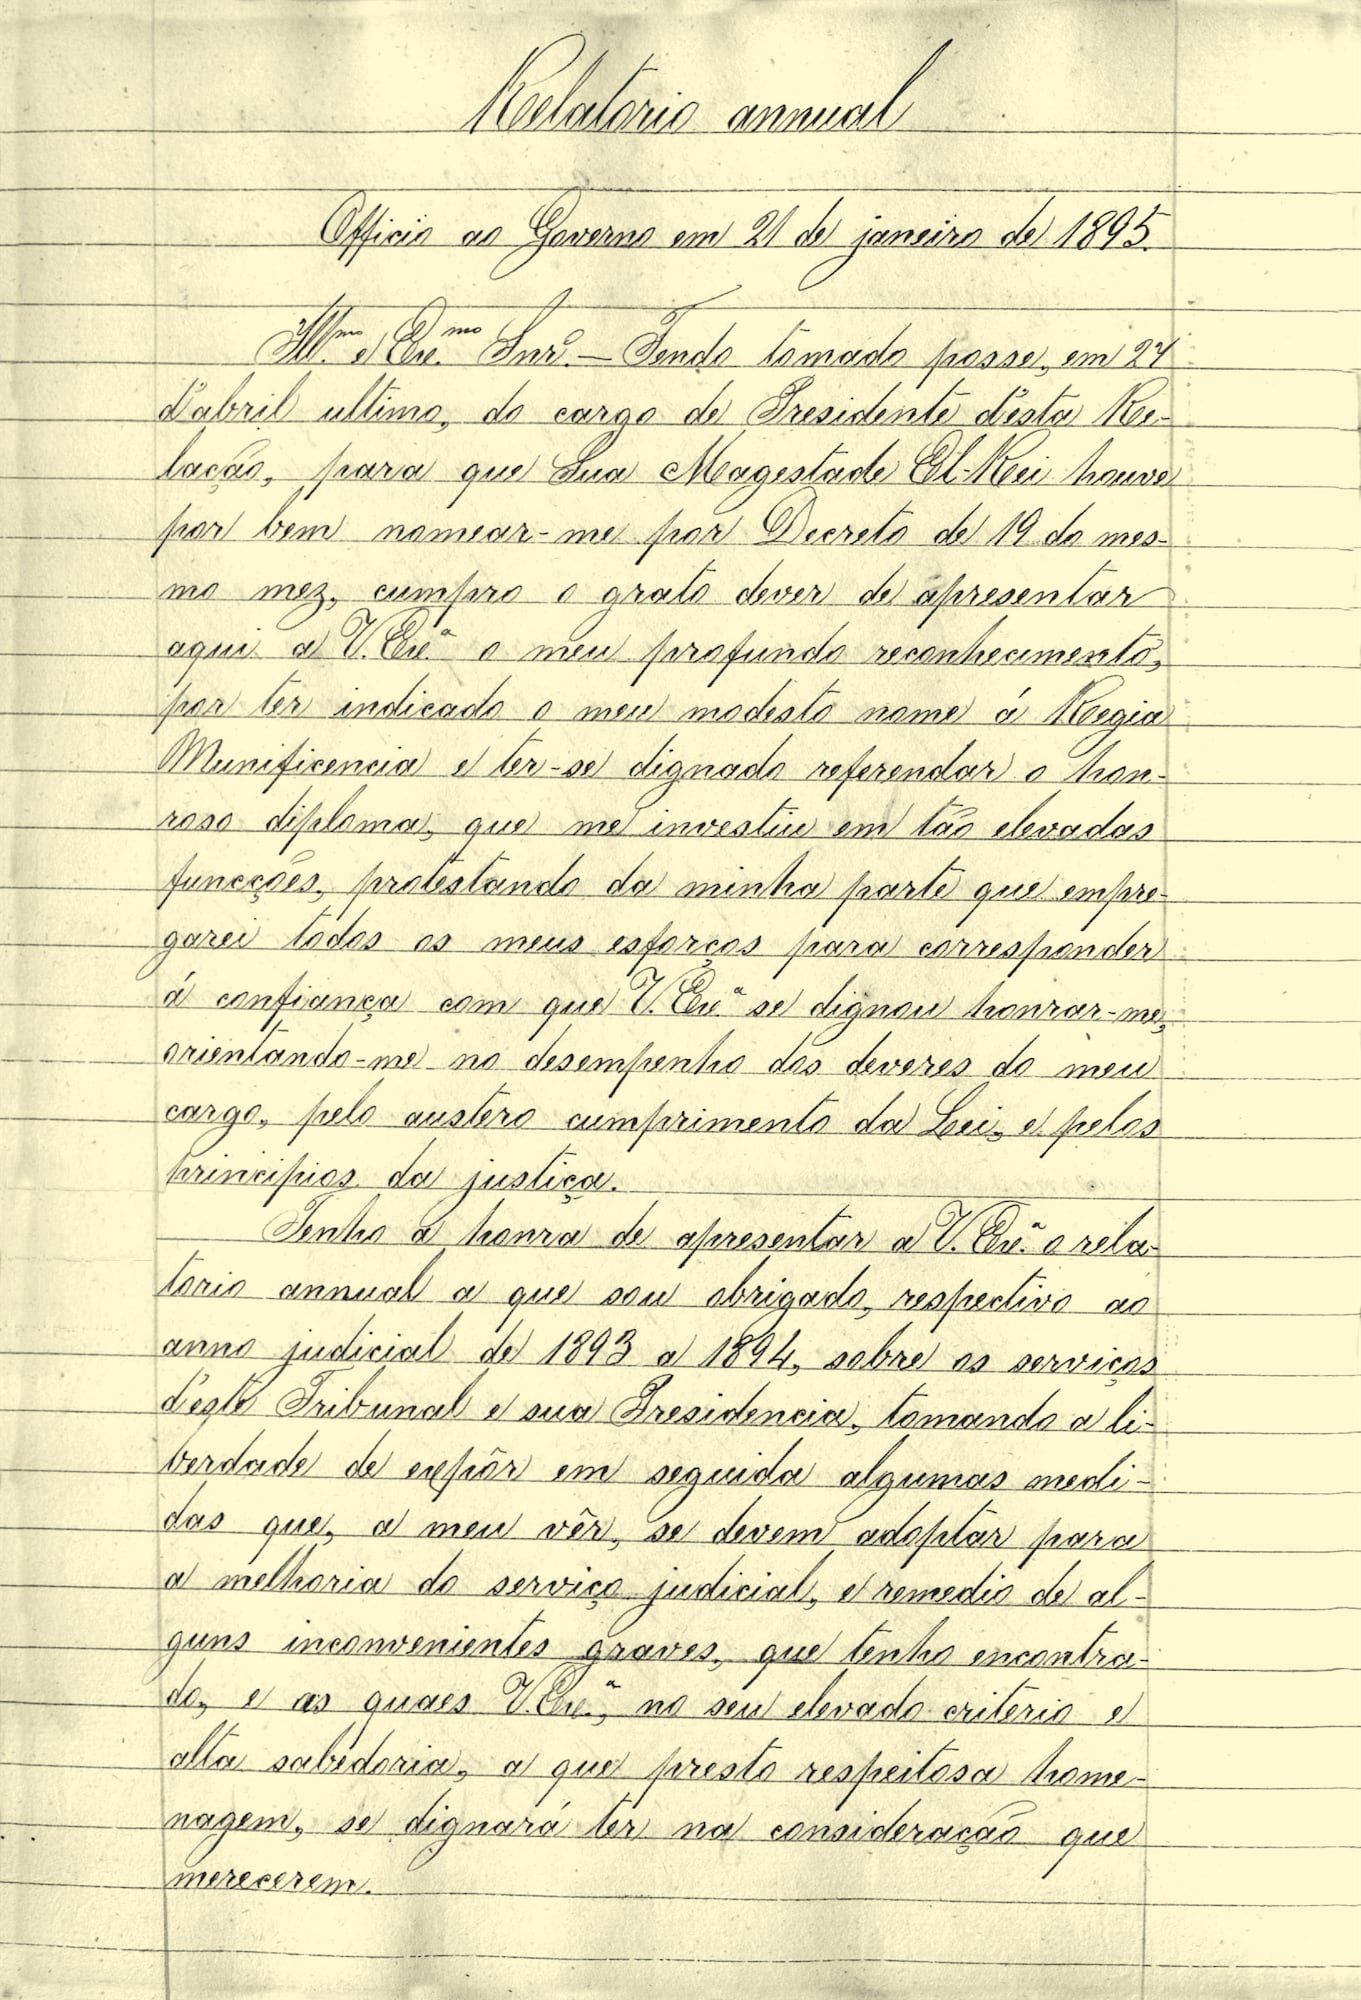 Relatorio annual
Officio ao Governo em 21 de janeiro de 1895.
Ill.mo e Ex.mo Snr. — Tendo tomado posse, em 27
d'abril ultimo, do cargo de Presidente d'esta Re-
lação, para que Sua Magestade El-Rei houve
por bem nomear-me por Decreto de 19 do mes-
mo mez, cumpro o grato dever de apresentar
aqui a V. Ex.a o meu profundo reconhecimento,
por ter indicado o meu modesto nome á Regia
Munificencia e ter-se dignado referendar o hon-
roso diploma, que me investiu em tão elevadas
funcções, protestando da minha parte que empre-
garei todos os meus esforços para corresponder
á confiança com que V. Ex.a se dignou honrar-me,
orientando-me no desempenho dos deveres do meu
cargo, pelo austero cumprimento da Lei, e pelos
principios da justiça.
Tenho a honra de apresentar a V. Ex.a o rela-
torio annual a que sou obrigado, respectivo ao
anno judicial de 1893 a 1894, sobre os serviços
d'este Tribunal e sua Presidencia, tomando a li-
berdade de expôr em seguida algumas medi-
das que, a meu vêr, se devem adoptar para
a melhoria do serviço judicial, e remedio de al-
guns inconvenientes graves, que tenho encontra-
do, e as quaes V. Ex.a, no seu elevado criterio e
alta sabedoria, a que presto respeitosa home-
nagem, se dignará ter na consideração que
merecerem.